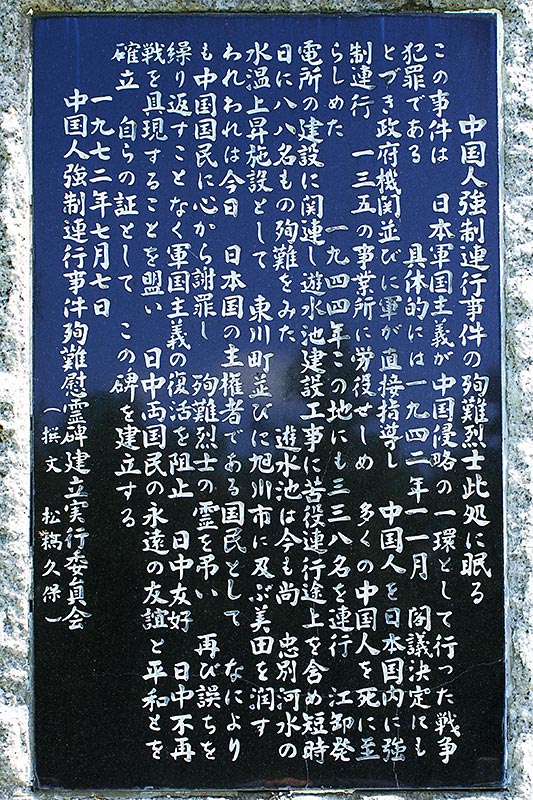 中国人強制連行事件の殉難烈士此処に眠る
この事件は　日本軍国主義が中国侵略の一環として行った戦争
犯罪である　具体的には一九四二年一一月　閣議決定にも
とづき政府機関並びに軍が直接指導し　中国人を日本国内に強
制連行　一三五の事業所に労役せしめ　多くの中国人を死に至
らしめた　一九四四年この地にも三三八名を連行　江卸発
電所の建設に関連し遊水池建設工事に苦役連行途上を含め短時
日に八八名もの殉難をみた　遊水池は今も尚　忠別河水の
水温上昇施設として　東川町並びに旭川市に及ぶ美田を潤す
われわれは今日　日本国の主権者である国民として　なにより
も中国国民に心から謝罪し　殉難烈士の霊を弔い　再び誤ちを
繰り返すことなく軍国主義の復活を阻止　日中友好　日中不再
戦を具現することを盟い　日中両国民の永遠の友誼と平和とを
確立　自らの証として　この碑を建立する
一九七二年七月七日
中国人強制連行事件殉難慰霊碑建立実行委員会
（撰文　松鶴久保一）